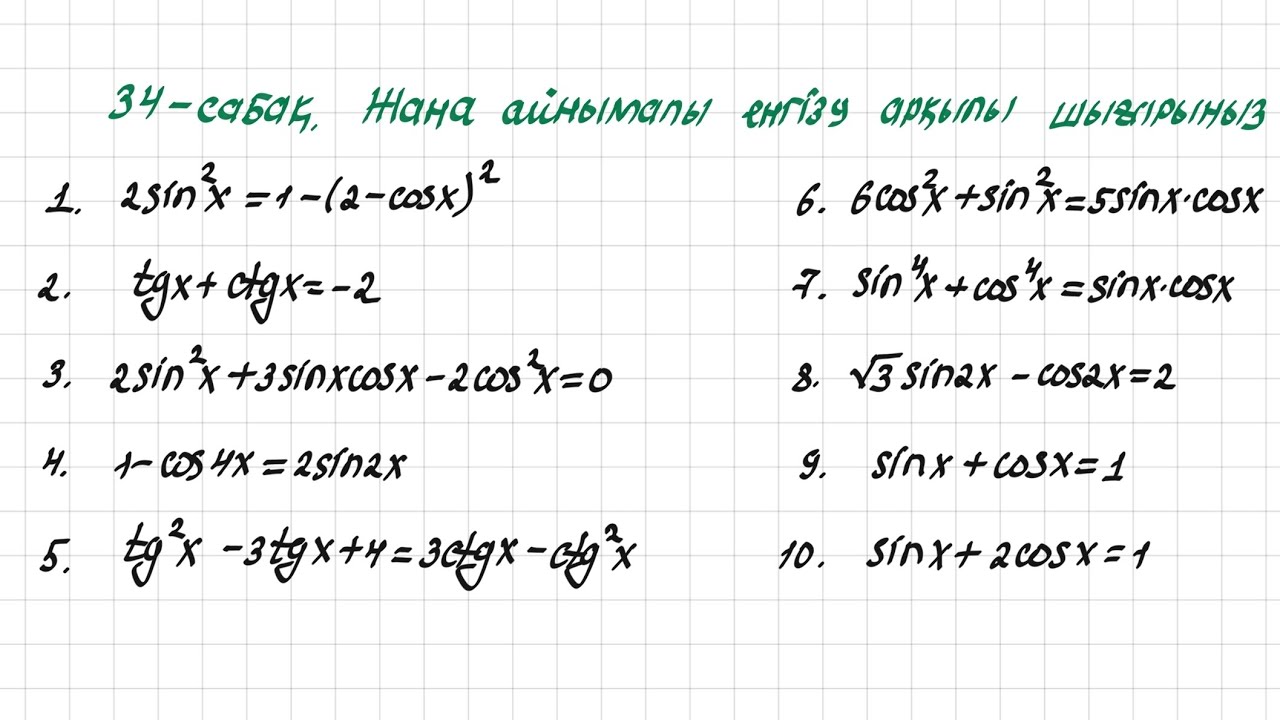 34-сабақ. Жаңа айнымалы енгізу арқылы шығарыңыз
1. 2sin²x = 1 - (2 - cosx)²
2. tgx + ctgx = -2
3. 2sin²x + 3sinxcosx - 2cos²x = 0
4. 1 - cos4x = 2sin2x
5. tg²x - 3tgx + 4 = 3ctgx - ctg²x
6. 6cos²x + sin²x = 5sinx·cosx
7. sin⁴x + cos⁴x = sinx·cosx
8. √3sin2x - cos2x = 2
9. sinx + cosx = 1
10. sinx + 2cosx = 1